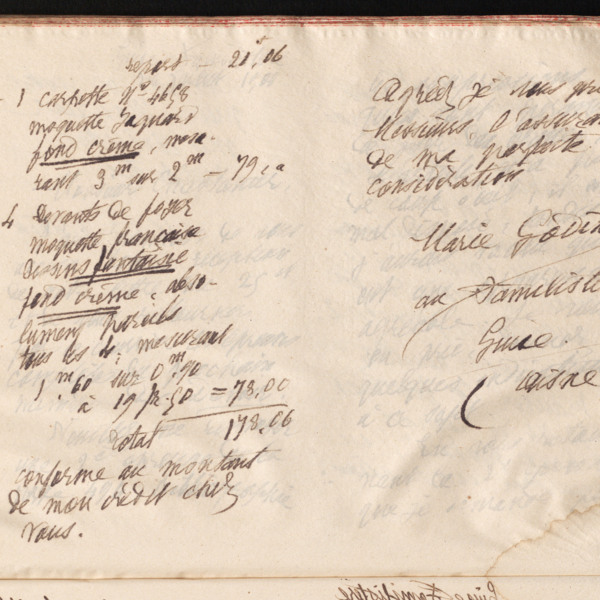 report — 21f,06
- 1 carpette No 4658
moquette Jaquard
fond crème, mesu-
rant 3m sur 2m — 79,00
4 Devants de foyer
moquette française
dessins fantaisie
fond crème, abso-
lument pareils
tous les 4; mesurant
1m60 sur 0m,90
à 19fr.50 = 78,00
total 178.06
conforme au montant
de mon crédit chez
vous.
Agréez je vous pri
Messieurs, l'assuran
de ma parfaite
considération
Marie Godin
au Familistè
Guise.
aisne
Guise Familistère